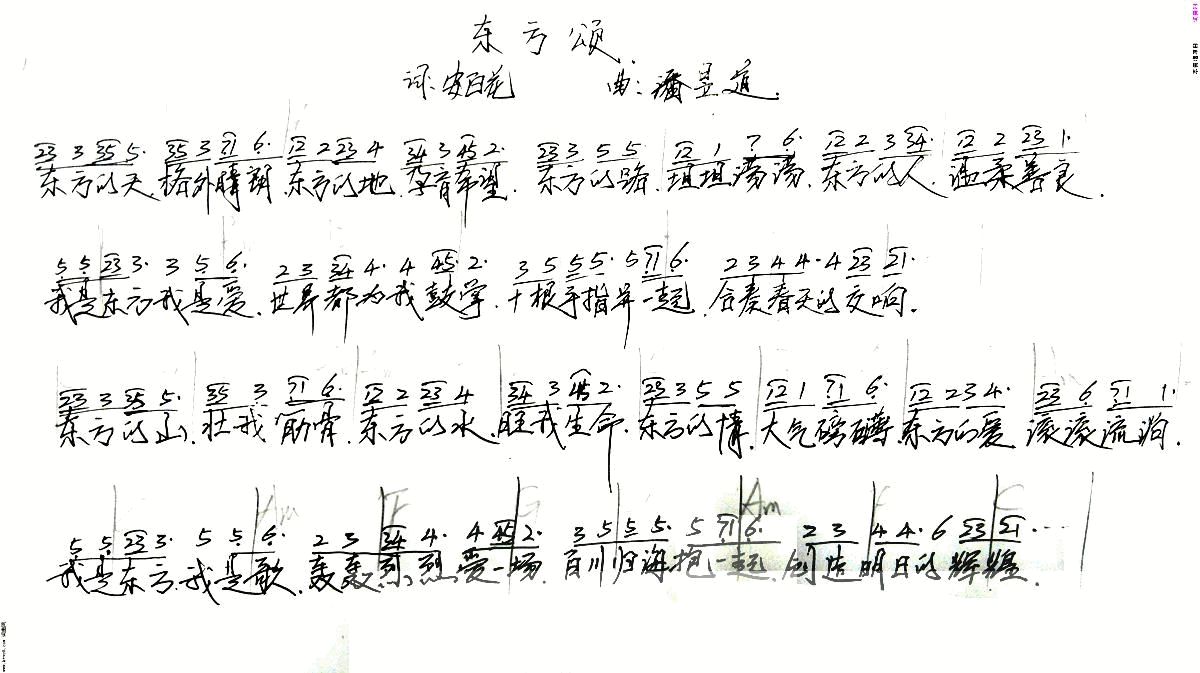 东方颂
词:安百花 曲:潘昱道.
23 3 35 5· 35 3 71 6· 12 2 23 4 34 3 45 2· 23 3 5 5 12 1 7 6· 12 2 3 34· 12 2 23 1·
东方的天,格外晴朗.东方的地,孕育希望.东方的路,坦坦荡荡,东方的人,温柔善良.
5 5 23 3· 3 5 6· 2 3 34 4· 4 45 2· 3 5 5 5· 5 71 6· 2 3 4 4· 4 23 21·
我是东方我是爱.世界都为我鼓掌.十根手指牵一起.合奏春天的交响.
23 3 35 5· 35 3 71 6· 12 2 23 4 34 3 45 2· 23 3 5 5 12 1 71 6· 12 2 3 4· 23 6 71 1·
东方的山,壮我筋骨.东方的水,旺我生命.东方的情,大气磅礴,东方的爱,滚滚流淌.
Am F G Am F C
5 5 23 3· 5 5 6· 2 3 34 4· 4 45 2· 3 5 5 5· 5 71 6· 2 3 4 4· 6 23 21· ···
我是东方,我是歌,轰轰烈烈爱一场.百川归海抱一起,创造明日的辉煌.